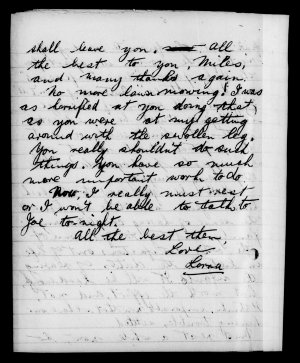 shall leave you. All
the best to you, Miles,
and many thanks again.
No more lawn mowing! I was
as horrified at you doing that,
as you were at my getting
around with the swollen leg.
You really shouldn't do such
things. You have so much
more important work to do.
Now, I really must rest
or I won't be able to talk to
Joe to-night.
All the best then,
Love
Lorna